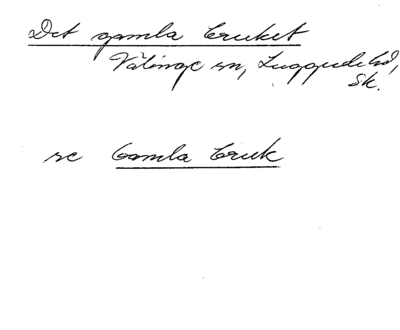 Det gamla bruket
Välinge sn, Luggude hd,
Sk.
se Gamla bruk